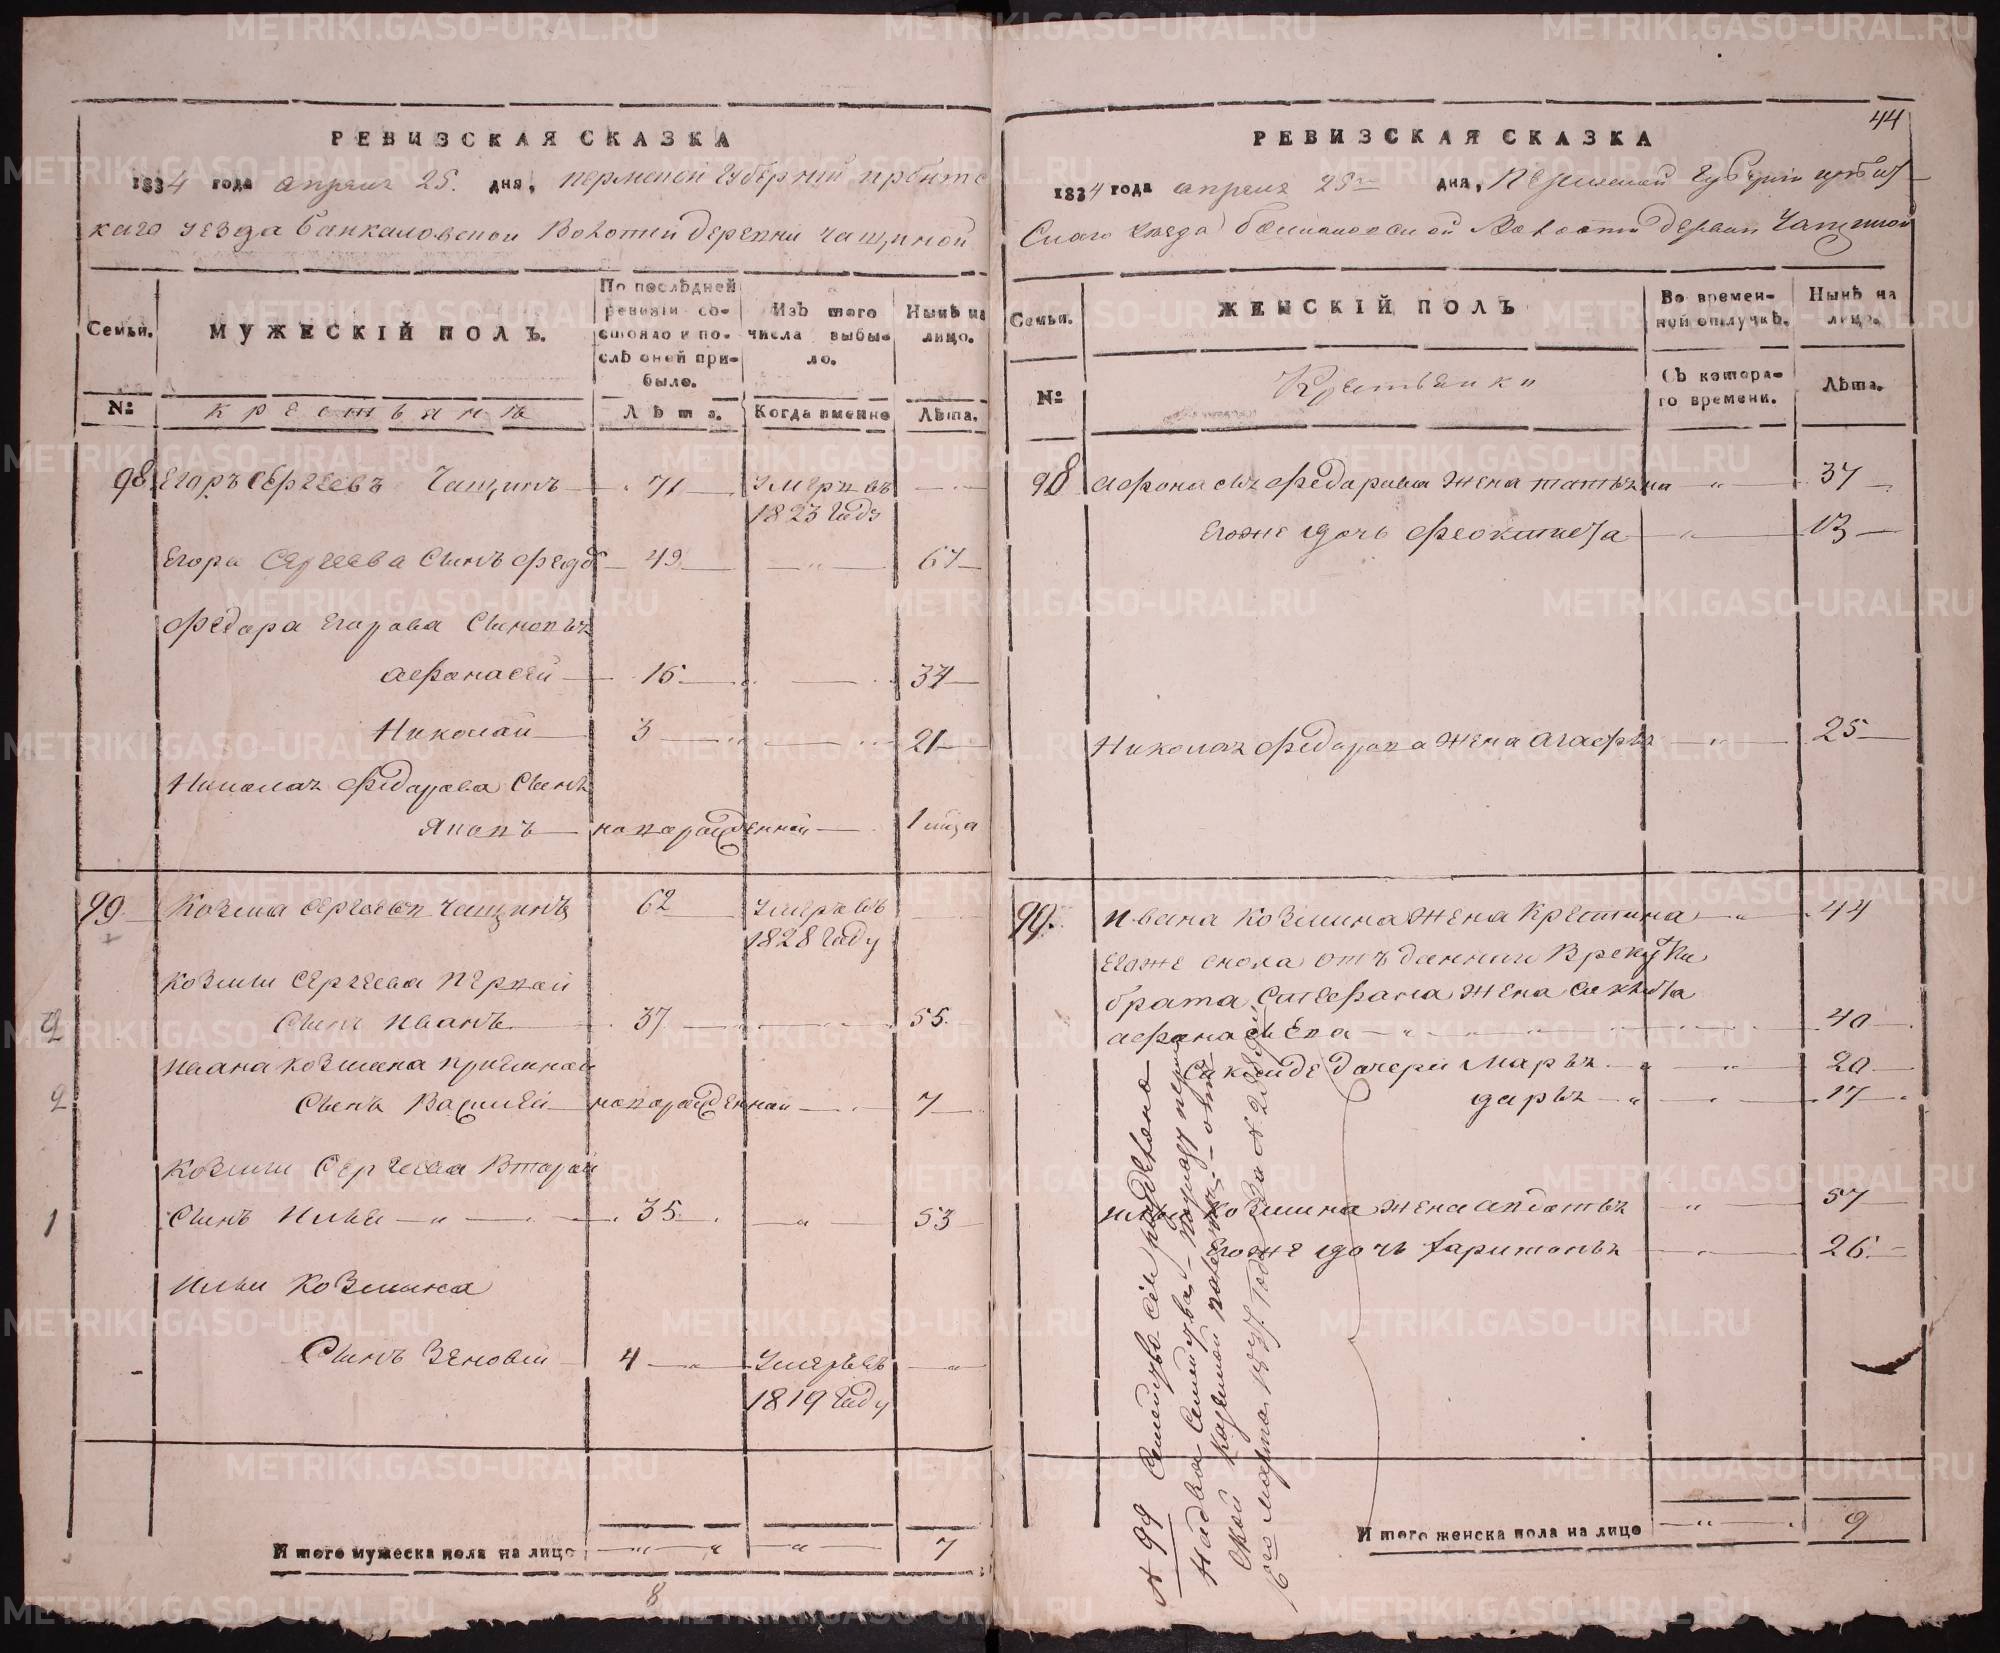 РЕВИЗСКАЯ СКАЗКА
1834 года апреля 25. дня, пермской губернии ирбитс
каго уезда Баикаловской Волости деревни чащиной
Семьи. МУЖЕСКІЙ ПОЛЪ. По послѣдней ревизіи состояло и послѣ оней прибыло. Изъ того числа выбыло. Нынѣ на лицо.
№ крестьянъ Лѣта. Когда именно Лѣта.
98. Егоръ Сергеевъ Чащинъ 71 умеръ въ
1823 году
Егора Сергеева Сынъ Федоръ 49 67
Федора Егорова Сыновья
афонасей 16 34
Николай 3 21
Николая Федорова Сынъ
Яковъ новорожденной
99 Козма Сергеевъ Чащинъ 62 умеръ въ
1828 году
Козмы Сергеева первой
Сынъ Иванъ 37 55
Ивана Козмина приемной
Сынъ Василей новорожденной 7
Козмы Сергеева Второй
Сынъ Илья 35 53
Ильи Козмина
Сынъ Зеновей 4 Умеръ въ
1819 году
И того мужеска пола на лицо 7
8
2
2
1
44
РЕВИЗСКАЯ СКАЗКА
1834 года апреля 25 дня, Пермской губернии ирбит
Скаго уезда Баикаловской Волости деревни Чащиной
Семьи. ЖЕНСКІЙ ПОЛЪ Во временной отлучкѣ. Нынѣ на лицо.
№ Крестьянки Съ котораго времени. Лѣта.
98 афонасья федорова жена татьяна 37
Егоже дочь феоктиста 13
Николая федорова жена агафья 25
99. Ивана Козмина жена Крестина 44
Егоже сноха отъ даннаго В рекруты
брата Стефана жена
афанасьева 40
дочери Марья 20
дарья 17
Козмина жена авдотья 57
Егоже дочь 26
И того женска пола на лицо 9
№ 99 Семейство сие разделено
На два Семейства
Ской казенной палаты
6го марта Года за №